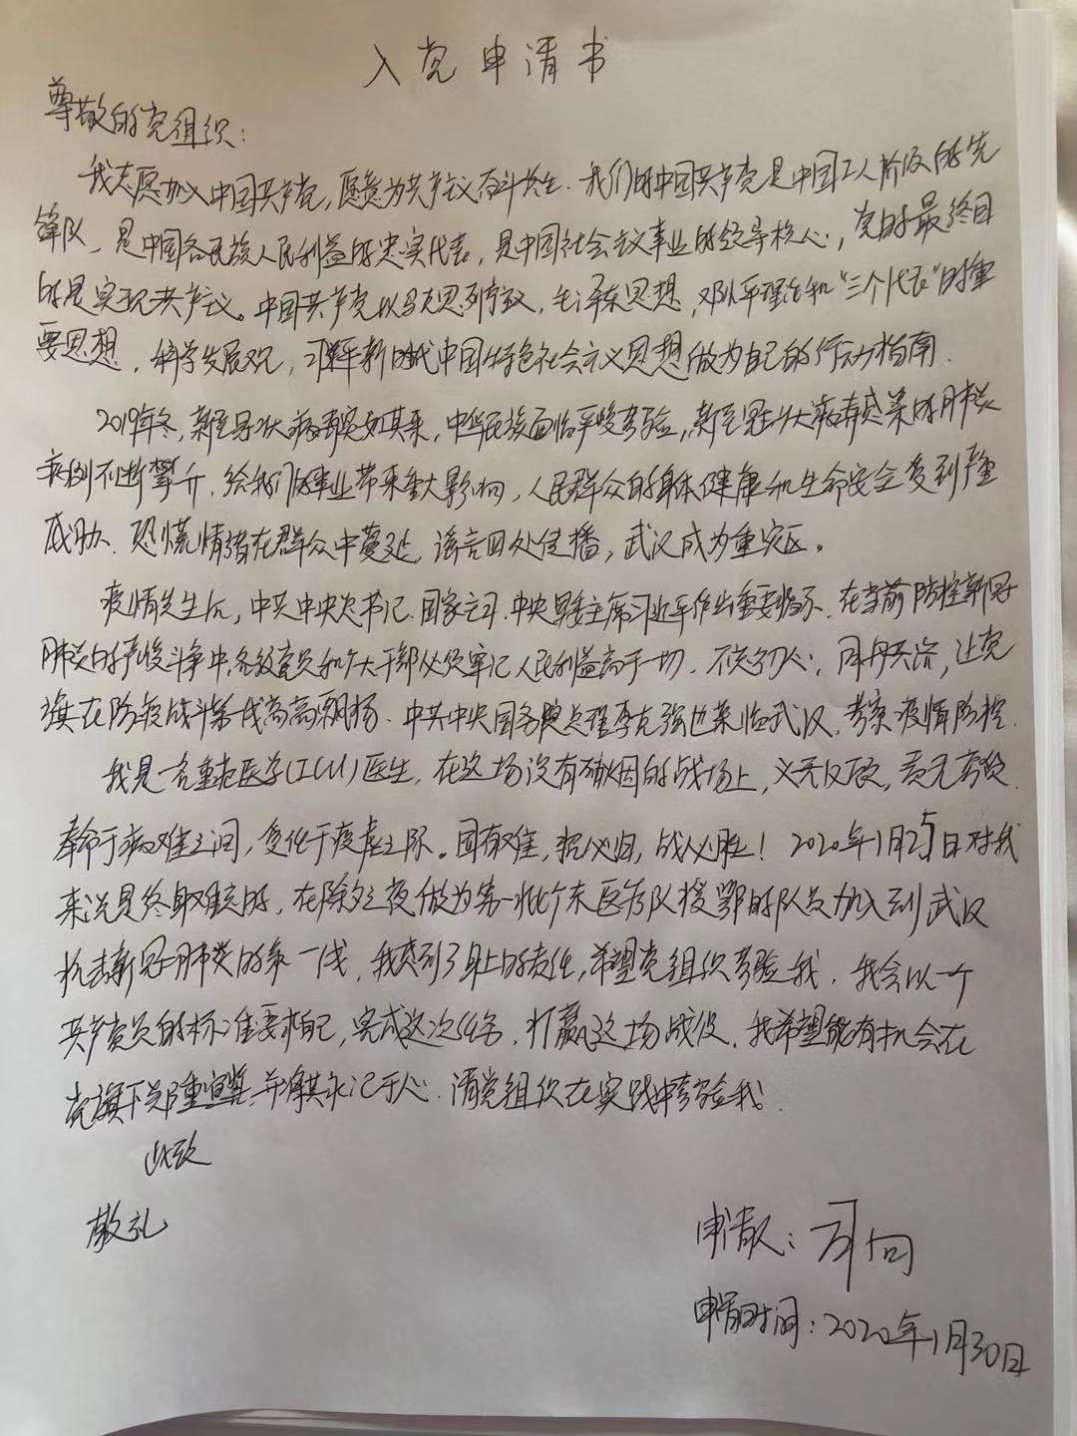 入党申请书
尊敬的党组织：
我志愿加入中国共产党，愿意为共产主义奋斗终生．我们的中国共产党是中国工人阶级的先
锋队、是中国各民族人民利益的忠实代表，是中国社会主义事业的领导核心，党的最终目
的是实现共产主义。中国共产党以马克思列宁主义，毛泽东思想，邓小平理论和“三个代表”的重
要思想，科学发展观，习近平新时代中国特色社会主义思想做为自己的行动指南．
2019年冬，新型冠状病毒突如其来，中华民族面临严峻考验，新型冠状病毒感染的肺炎
病例不断攀升．给我们的事业带来重大影响，人民群众的身体健康和生命安全受到严重
威胁、恐慌情绪在群众中蔓延，谣言四处传播，武汉成为重灾区。
疫情发生后，中共中央总书记、国家主席、中央军委主席习近平作出重要指示．在当前防控新冠
肺炎的严峻斗争中，各级党员和广大干部必须牢记人民利益高于一切．不忘初心，同舟共济，让党
旗在防疫战斗第一线高高飘扬．中共中央国务院总理李克强也莅临武汉，考察疫情防控．
我是一名重症医学(ICU)医生，在这场没有硝烟的战场上，义无反顾，责无旁贷．
奉命于病难之间，受任于疫虐之际。国有难，招必归，战必胜！2020年1月25日对我
来说是终身难忘的，在除夕之夜做为第一批广东医疗队援鄂的队员加入到武汉
抗击新冠肺炎的第一线，我感到了身上的责任，希望党组织考验我．我会以一个
共产党员的标准要求自己，完成这次任务，打赢这场战役．我希望能有机会在
党旗下郑重宣誓，并将其永记于心．请党组织在实践中考验我。
此致
敬礼
申请人：司向
申请时间：2020年1月30日